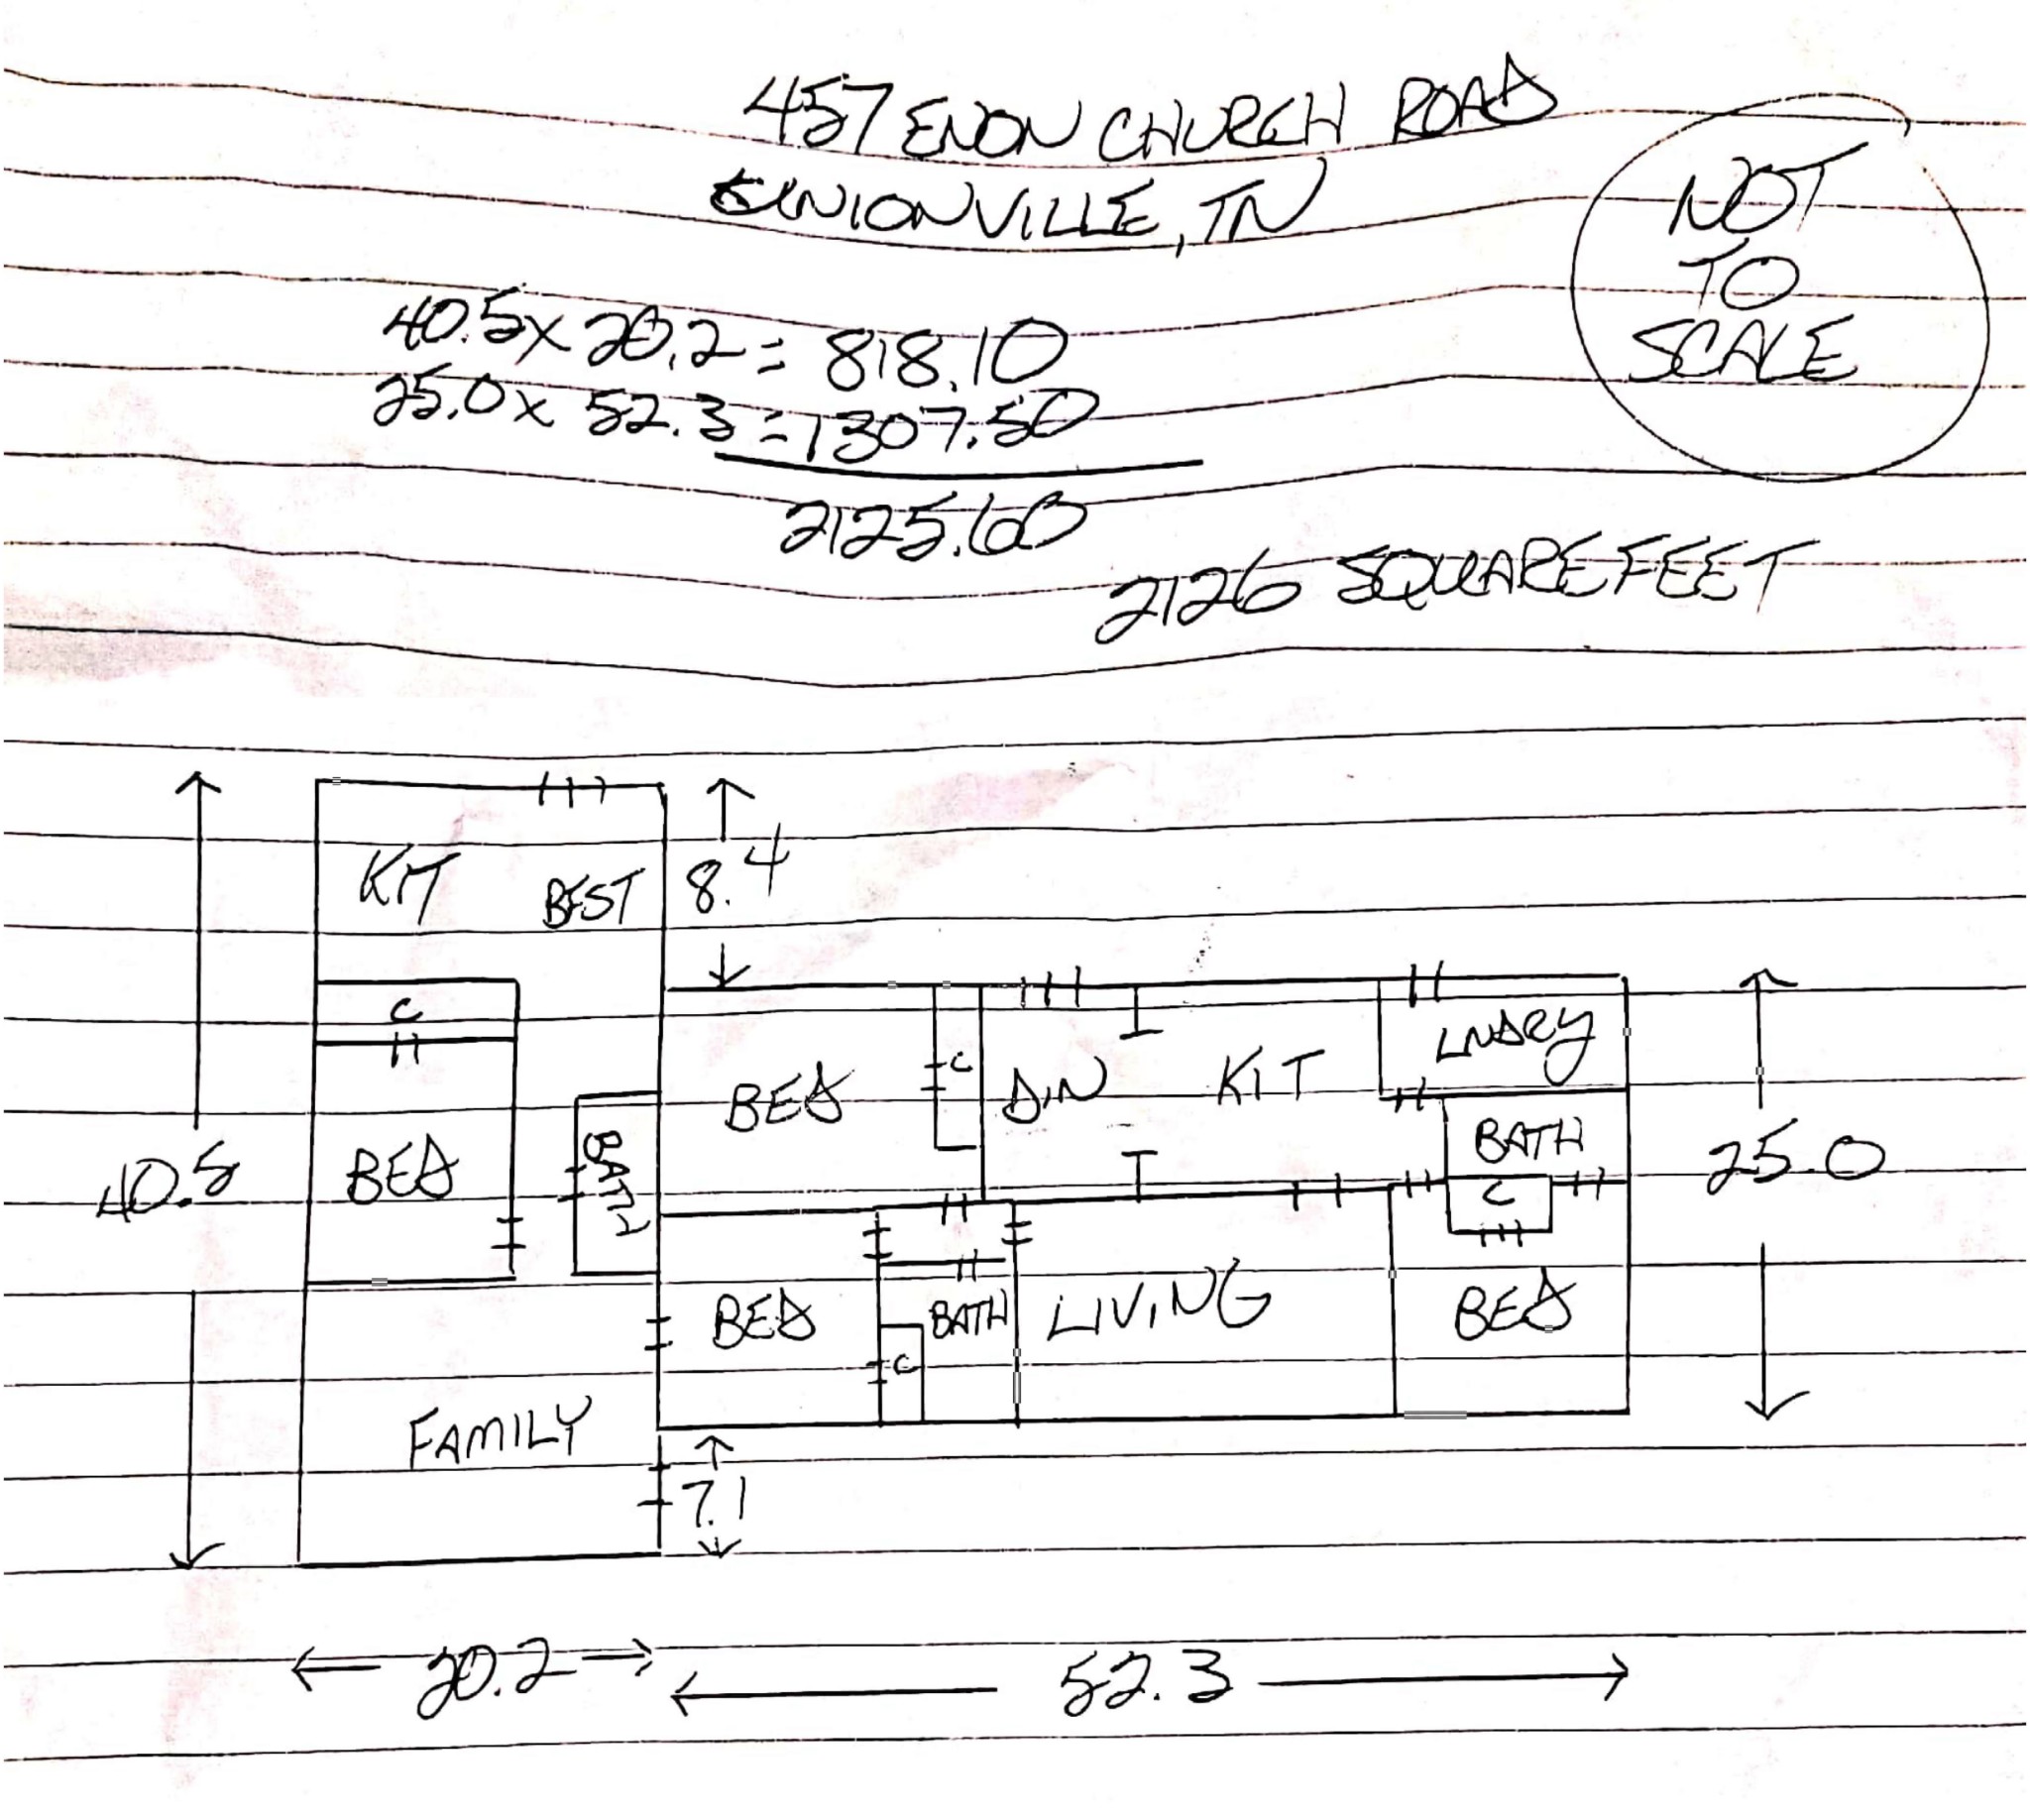 457 ENON CHURCH ROAD
UNIONVILLE, TN
NOT
TO
SCALE
40.5 x 20.2 = 818.10
25.0 x 52.3 = 1307.50
2125.60
2126 SQUARE FEET
KIT
BEST
8.4
C
BED
BATH
40.5
BED
C
DIN
KIT
LNDRY
BATH
C
25.0
BED
BATH
C
LIVING
BED
FAMILY
7.1
20.2
52.3